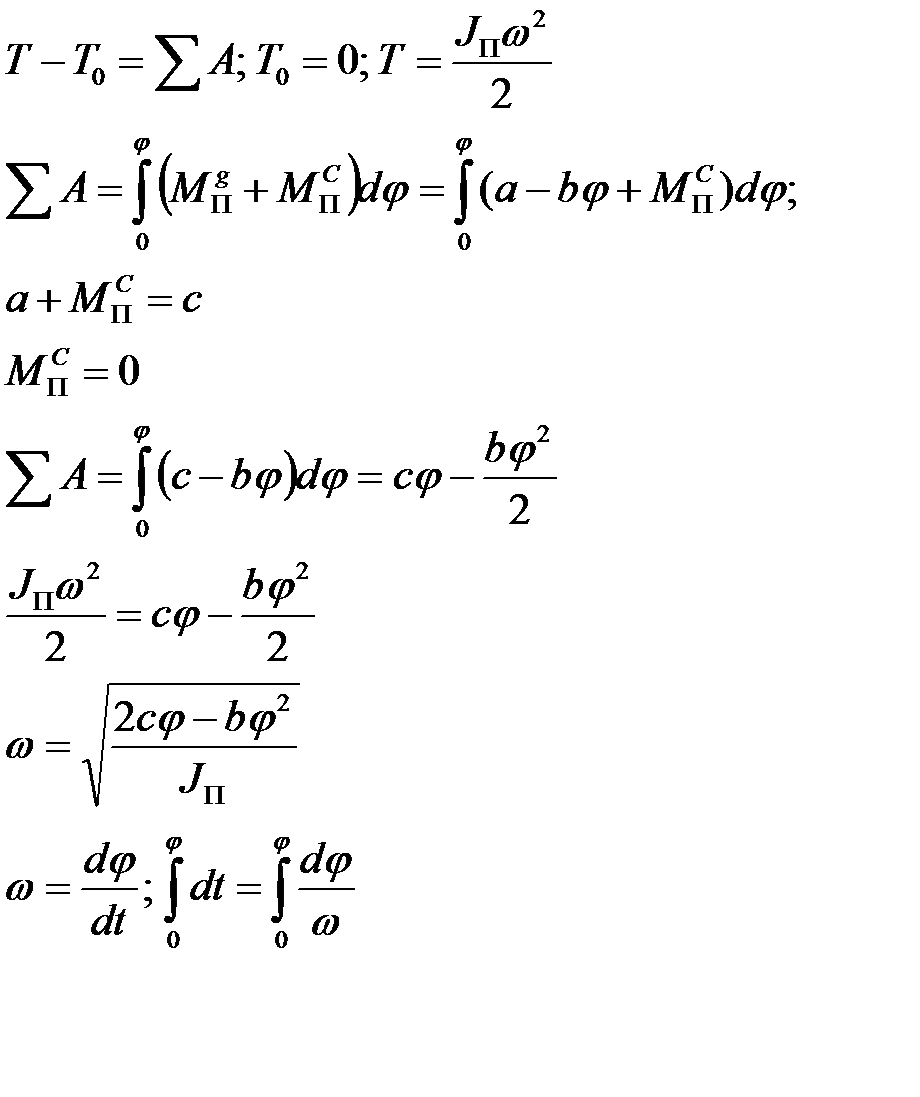 T − T₀ = ∑ A; T₀ = 0; T = J_П ω² / 2
∑ A = ∫₀^φ (M_П^g + M_П^C)dφ = ∫₀^φ (a − bφ + M_П^C)dφ;
a + M_П^C = c
M_П^C = 0
∑ A = ∫₀^φ (c − bφ)dφ = cφ − bφ² / 2
J_П ω² / 2 = cφ − bφ² / 2
ω = √((2cφ − bφ²) / J_П)
ω = dφ / dt; ∫₀^φ dt = ∫₀^φ dφ / ω